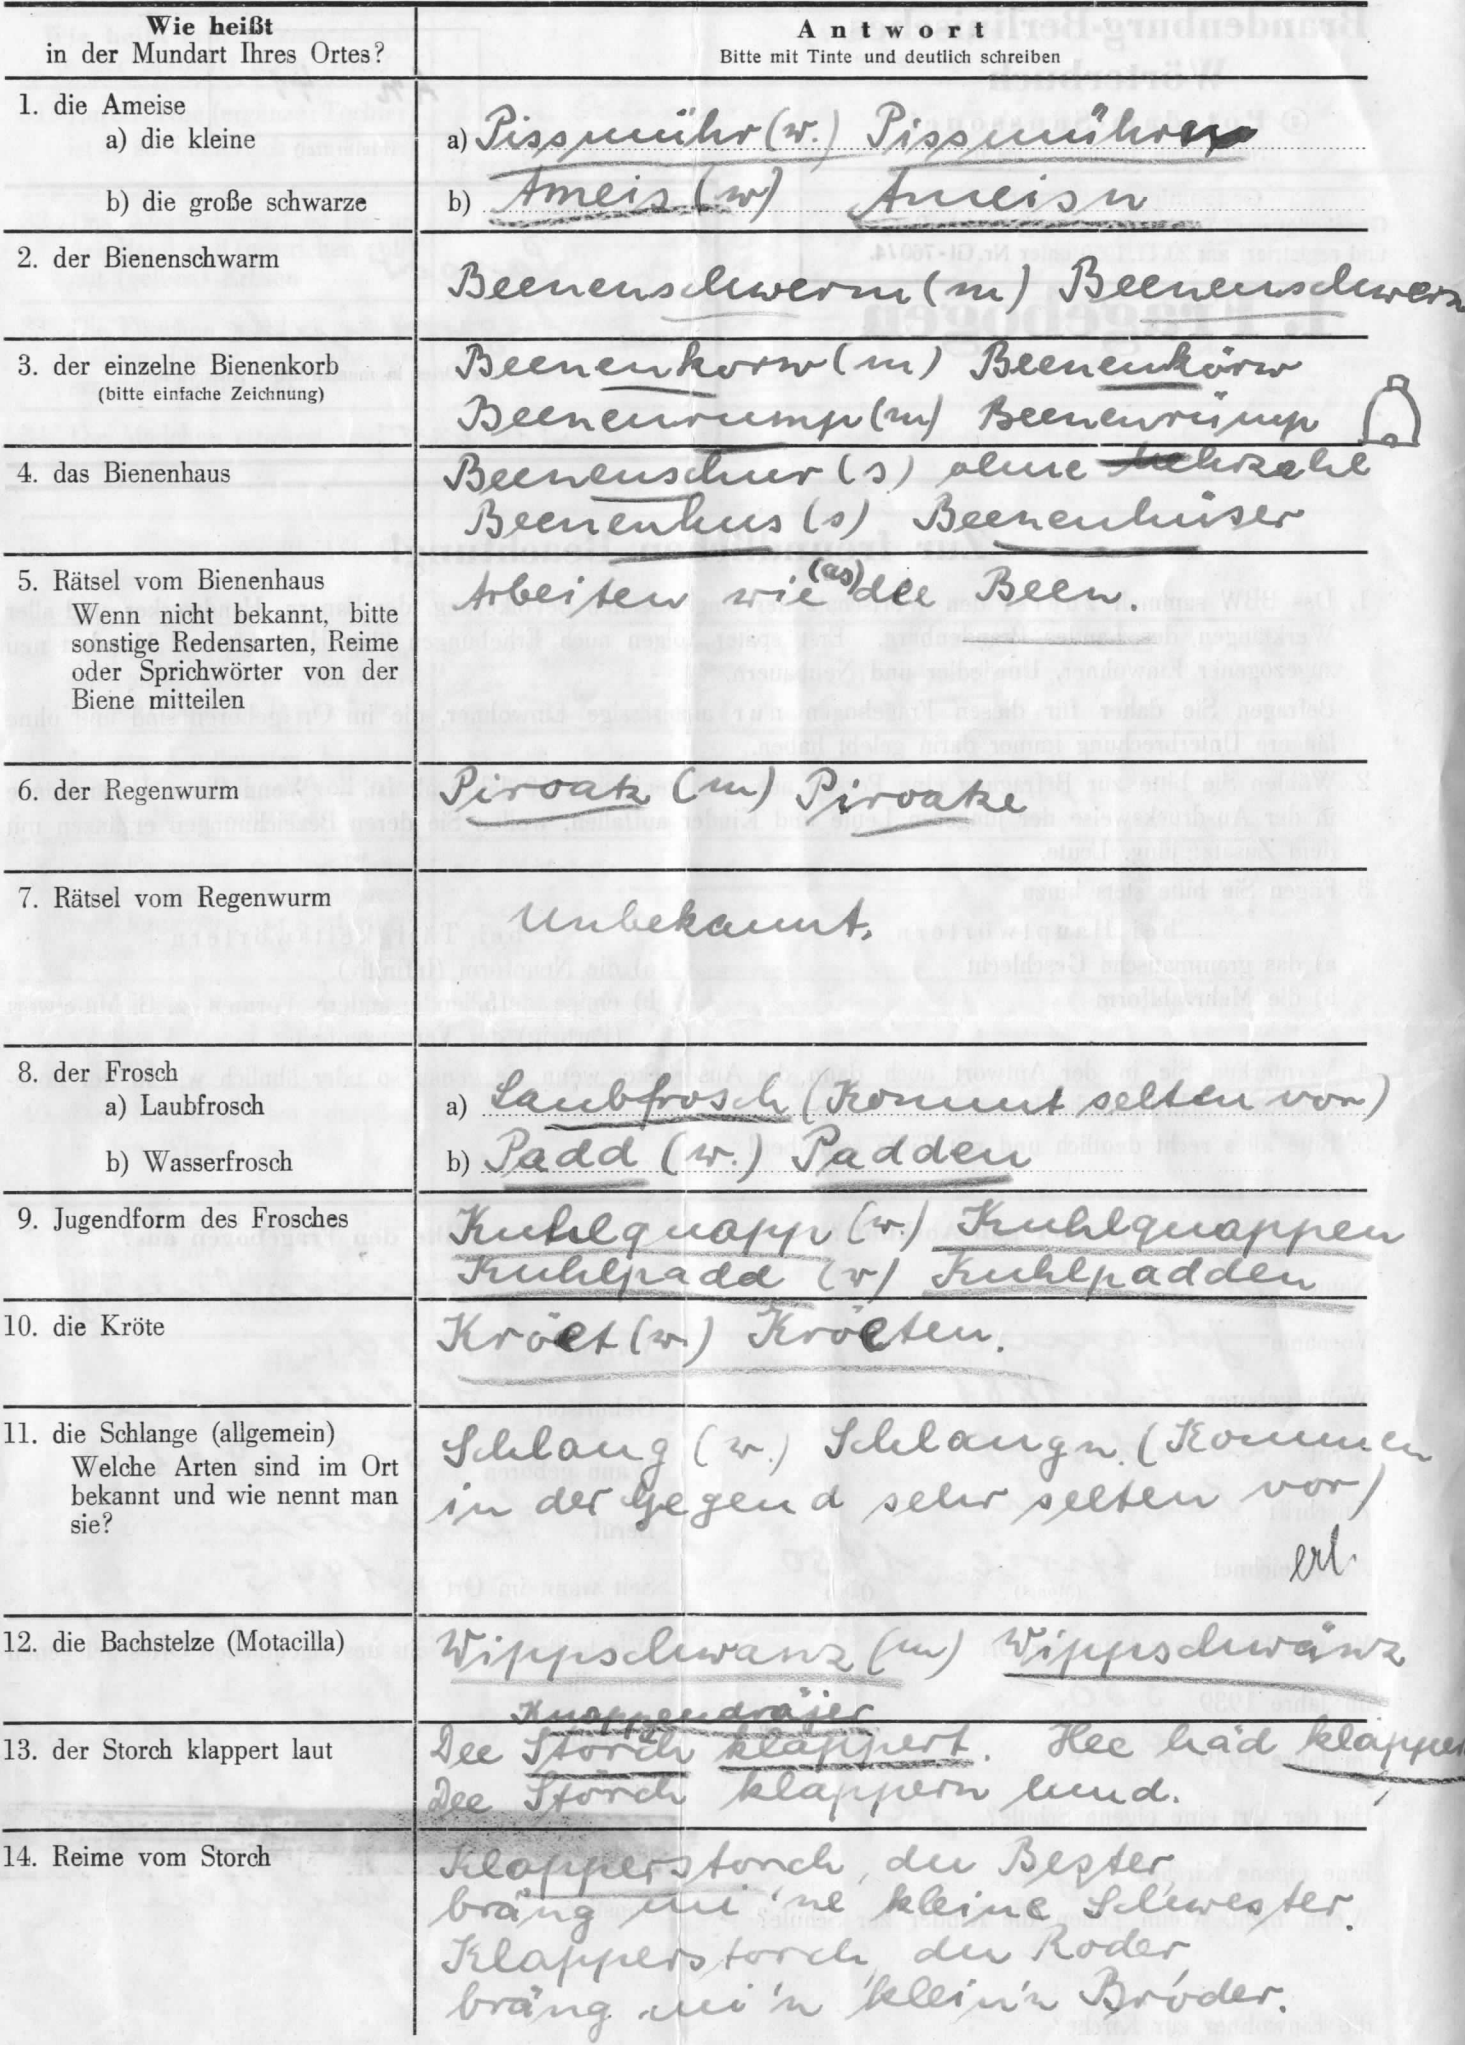 Wie heißt
in der Mundart Ihres Ortes?
Antwort
Bitte mit Tinte und deutlich schreiben
1. die Ameise
a) die kleine
a) Pissmühr (w.) Pissmühren
b) die große schwarze
b) Ameis (w) Ameisn
2. der Bienenschwarm
Beenenschwerm (m) Beenenschwerm
3. der einzelne Bienenkorb
(bitte einfache Zeichnung)
Beenenkorw (m) Beenenkörw
Beenenrump (m) Beenenrümp
4. das Bienenhaus
Beenenschur (s) ohne Mehrzahl
Beenenhus (s) Beenenhüser
5. Rätsel vom Bienenhaus
Wenn nicht bekannt, bitte
sonstige Redensarten, Reime
oder Sprichwörter von der
Biene mitteilen
Arbeiten wie (as) die Been.
6. der Regenwurm
Piroatz (m) Piroatze
7. Rätsel vom Regenwurm
Unbekannt.
8. der Frosch
a) Laubfrosch
a) Laubfrosch (Kommt selten vor)
b) Wasserfrosch
b) Padd (w.) Padden
9. Jugendform des Frosches
Kuhlquapp (w.) Kuhlquappen
Kuhlpadd (w) Kuhlpadden
10. die Kröte
Kröet (w.) Kröeten.
11. die Schlange (allgemein)
Welche Arten sind im Ort
bekannt und wie nennt man
sie?
Schlang (w.) Schlangn. (Kommen
in der Gegend sehr selten vor)
erl.
12. die Bachstelze (Motacilla)
Wippschwanz (m) Wippschwänz
13. der Storch klappert laut
Knappendräjer
Dee Storch klappert. Hee häd klappert
Dee Störch klappern lund.
14. Reime vom Storch
Klapperstorch, du Bester,
bräng mi 'ne kleine Schwester.
Klapperstorch, du Roder,
bräng mi 'n klein'n Broder.